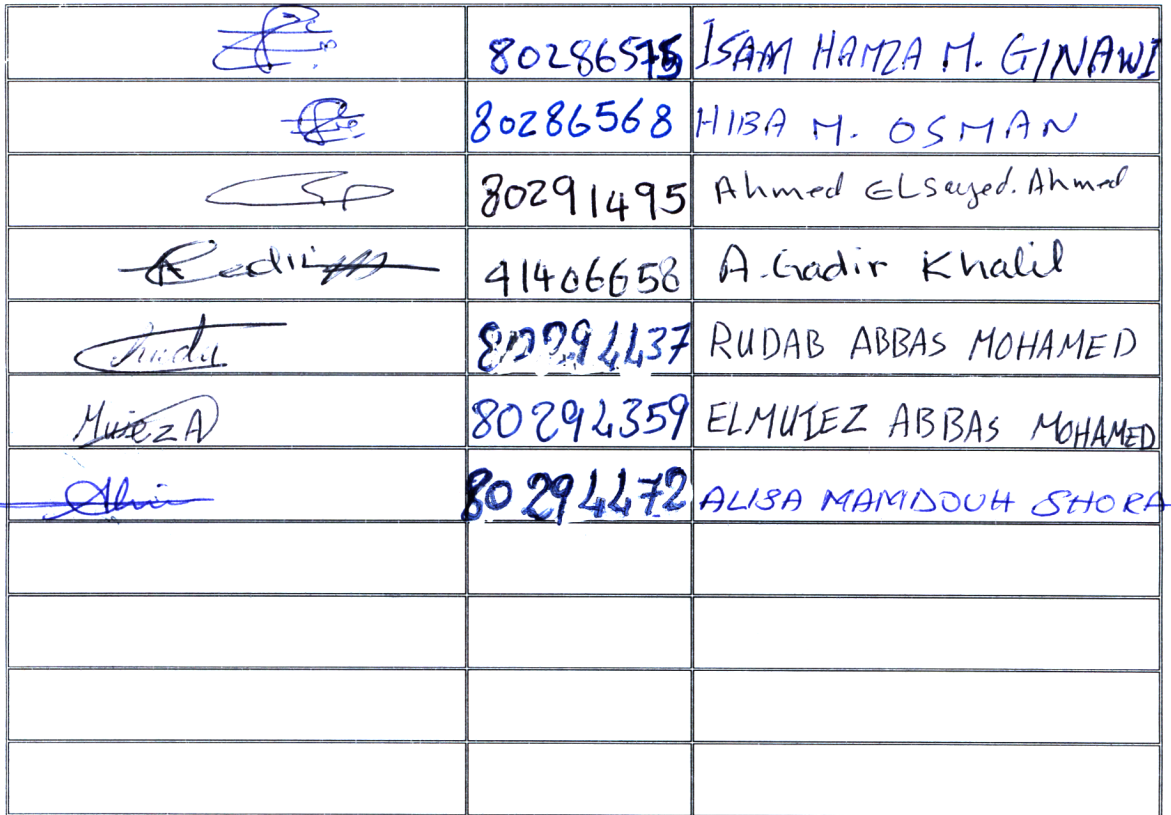 80286575 ISAM HAMZA M. GINAWI
80286568 HIBA M. OSMAN
80291495 Ahmed ELSayed. Ahmed
41406658 A. Gadir Khalil
80294437 RUDAB ABBAS MOHAMED
MuiezA 80294359 ELMUIEZ ABBAS MOHAMED
80294472 ALISA MAMDOUH SHORA